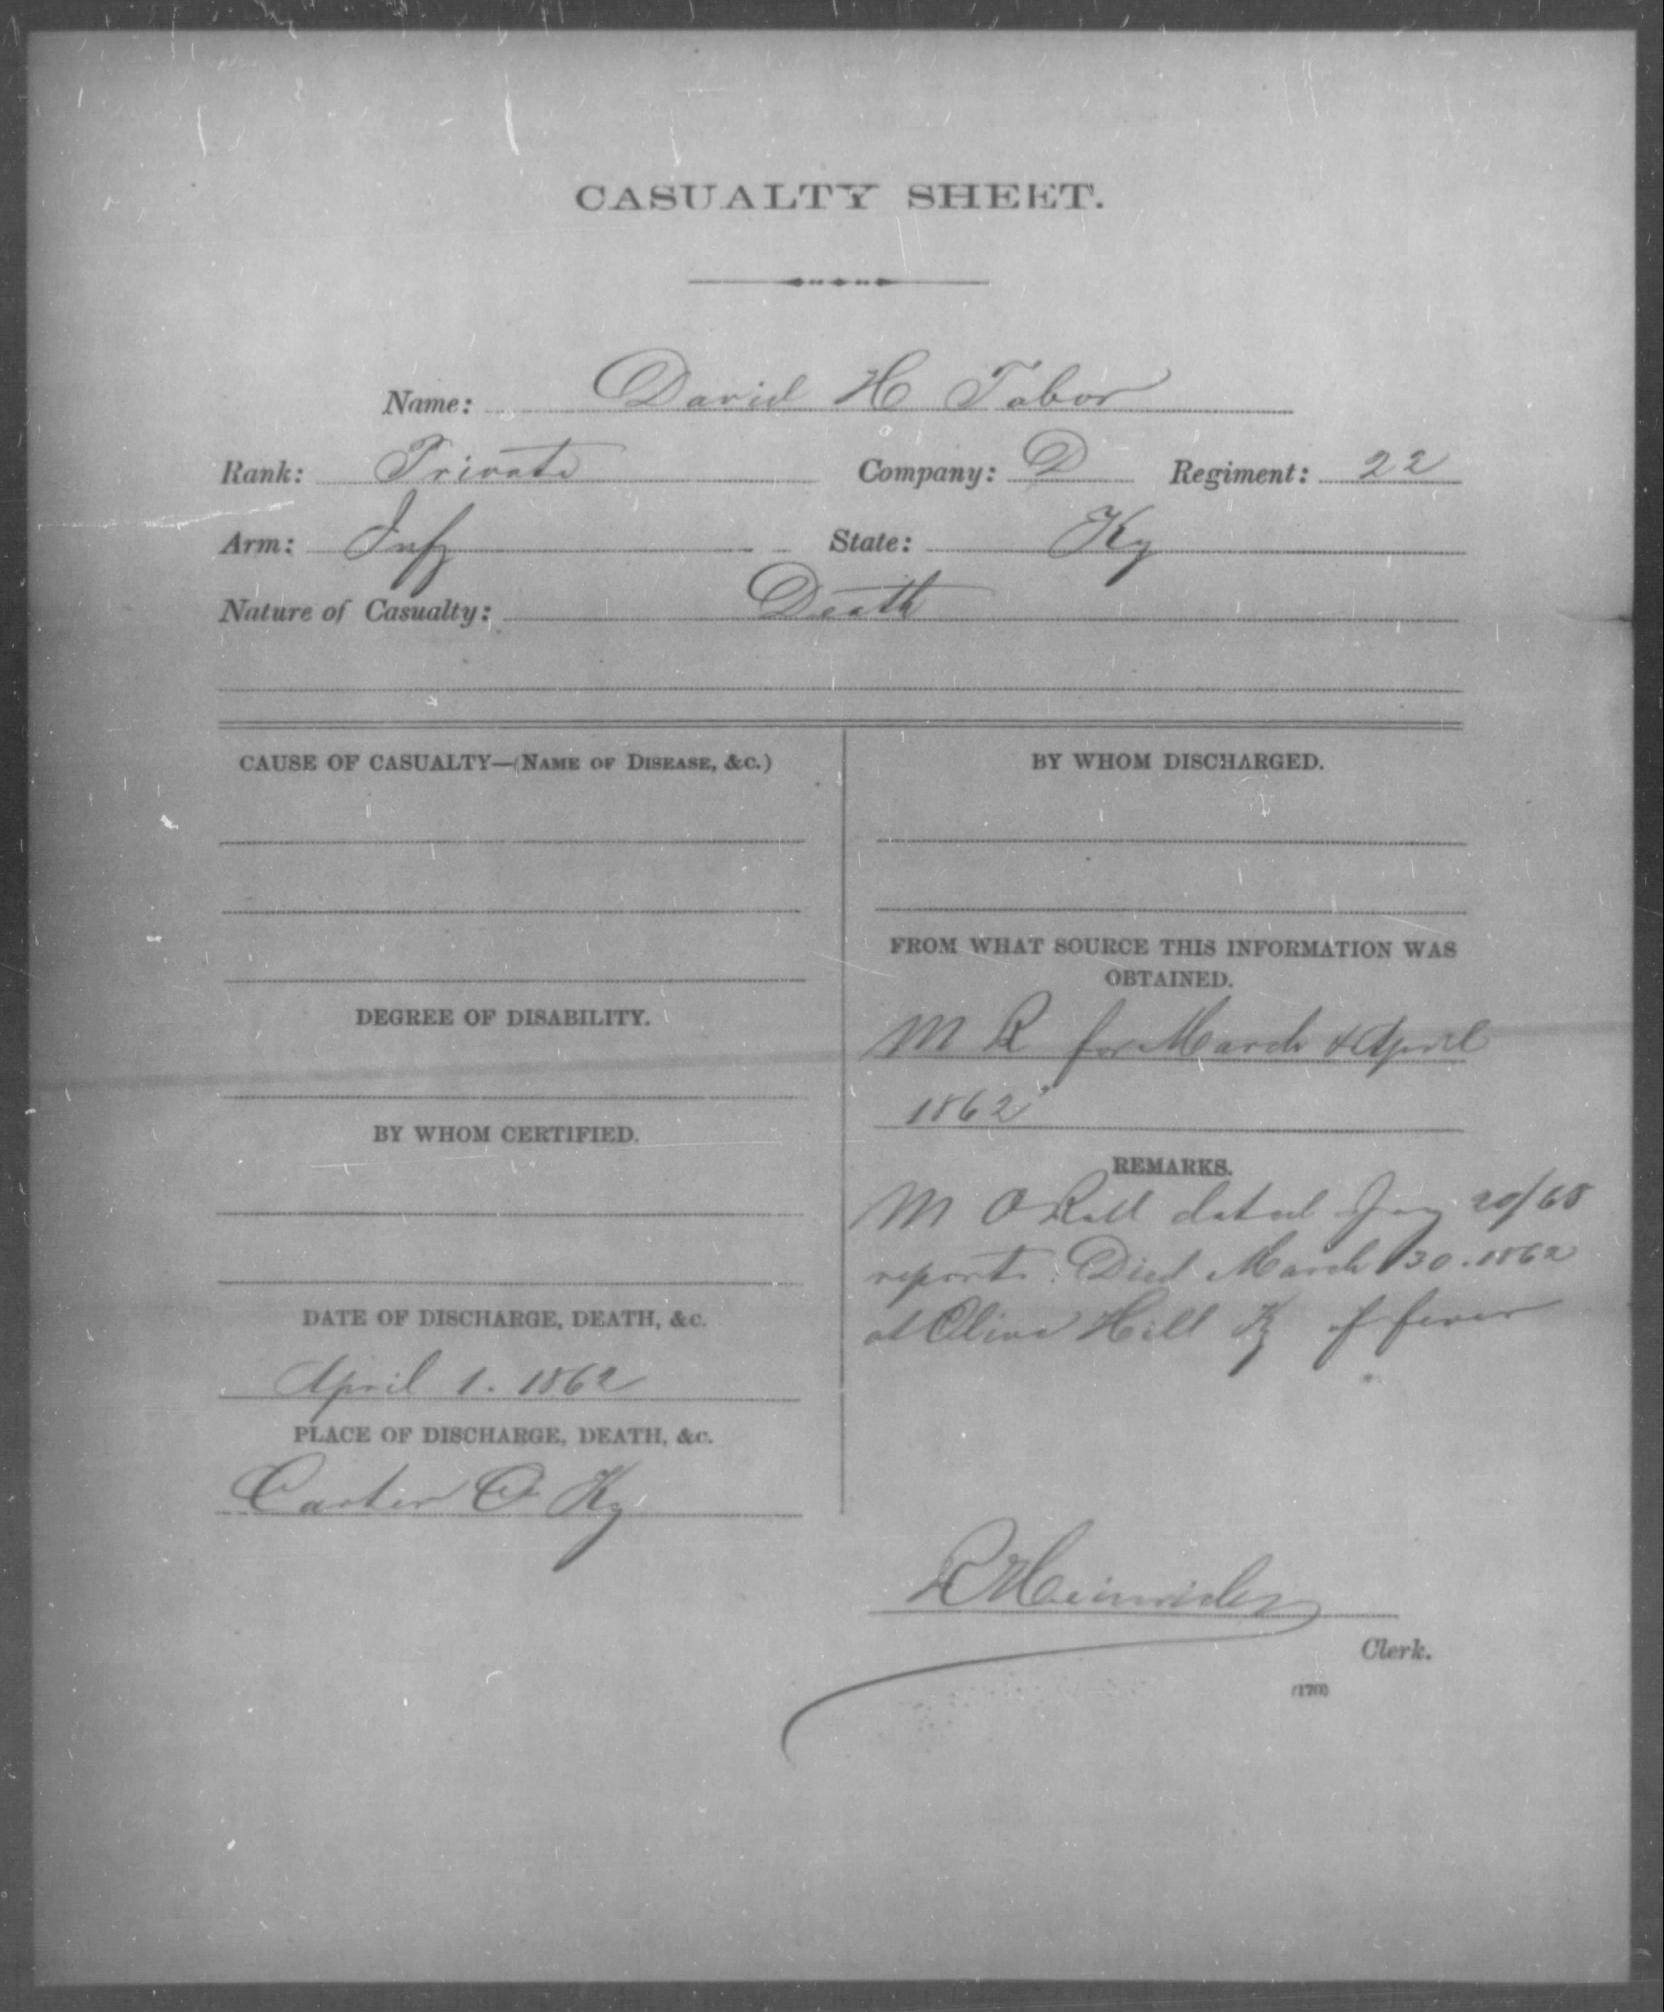 CASUALTY SHEET.
Name: David H Tabor
Rank: Private Company: D Regiment: 22
Arm: Infy State: Ky
Nature of Casualty: Death
CAUSE OF CASUALTY—(NAME OF DISEASE, &c.)
DEGREE OF DISABILITY.
BY WHOM CERTIFIED.
DATE OF DISCHARGE, DEATH, &c.
April 1. 1862
PLACE OF DISCHARGE, DEATH, &c.
Carter Co Ky
BY WHOM DISCHARGED.
FROM WHAT SOURCE THIS INFORMATION WAS
OBTAINED.
M R for March & April
1862
REMARKS.
M O Roll dated Jany 20/65
reports. Died March 30. 1862
at Olive Hill Ky of fever
Clerk.
(170)